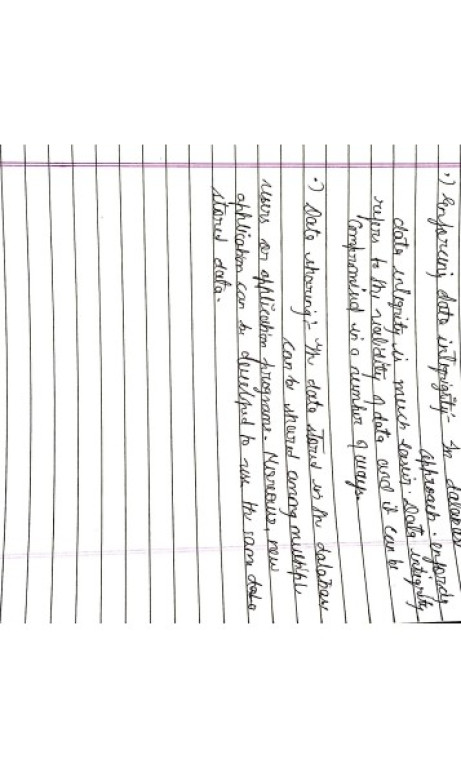 •) Enforcing data intigrity:- In database
approach enforcing
data intigrity is much easier. Data intigrity
refers to the validity of data and it can be
compromised in a number of ways.
•) Data sharing:- The data stored in the database
can be shared among multiple
users or application programs. Moreover, new
application can be developed to use the same data
stored data.